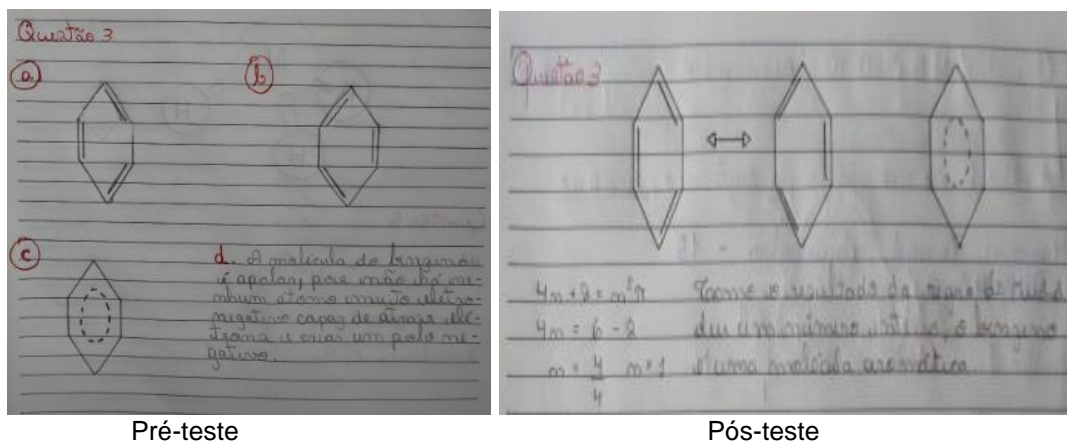 Questão 3
a
b
c
d. A molécula do benzeno
é apolar, pois não há ne-
nhum átomo muito eletro-
negativo capaz de atrair elé-
trons e criar um polo ne-
gativo.
Questão 3
4n + 2 = nºπ Como o resultado da regra de Hückel
4n = 6 - 2 deu um número inteiro, o benzeno
n = 4/4 n = 1 é uma molécula aromática.
Pré-teste
Pós-teste